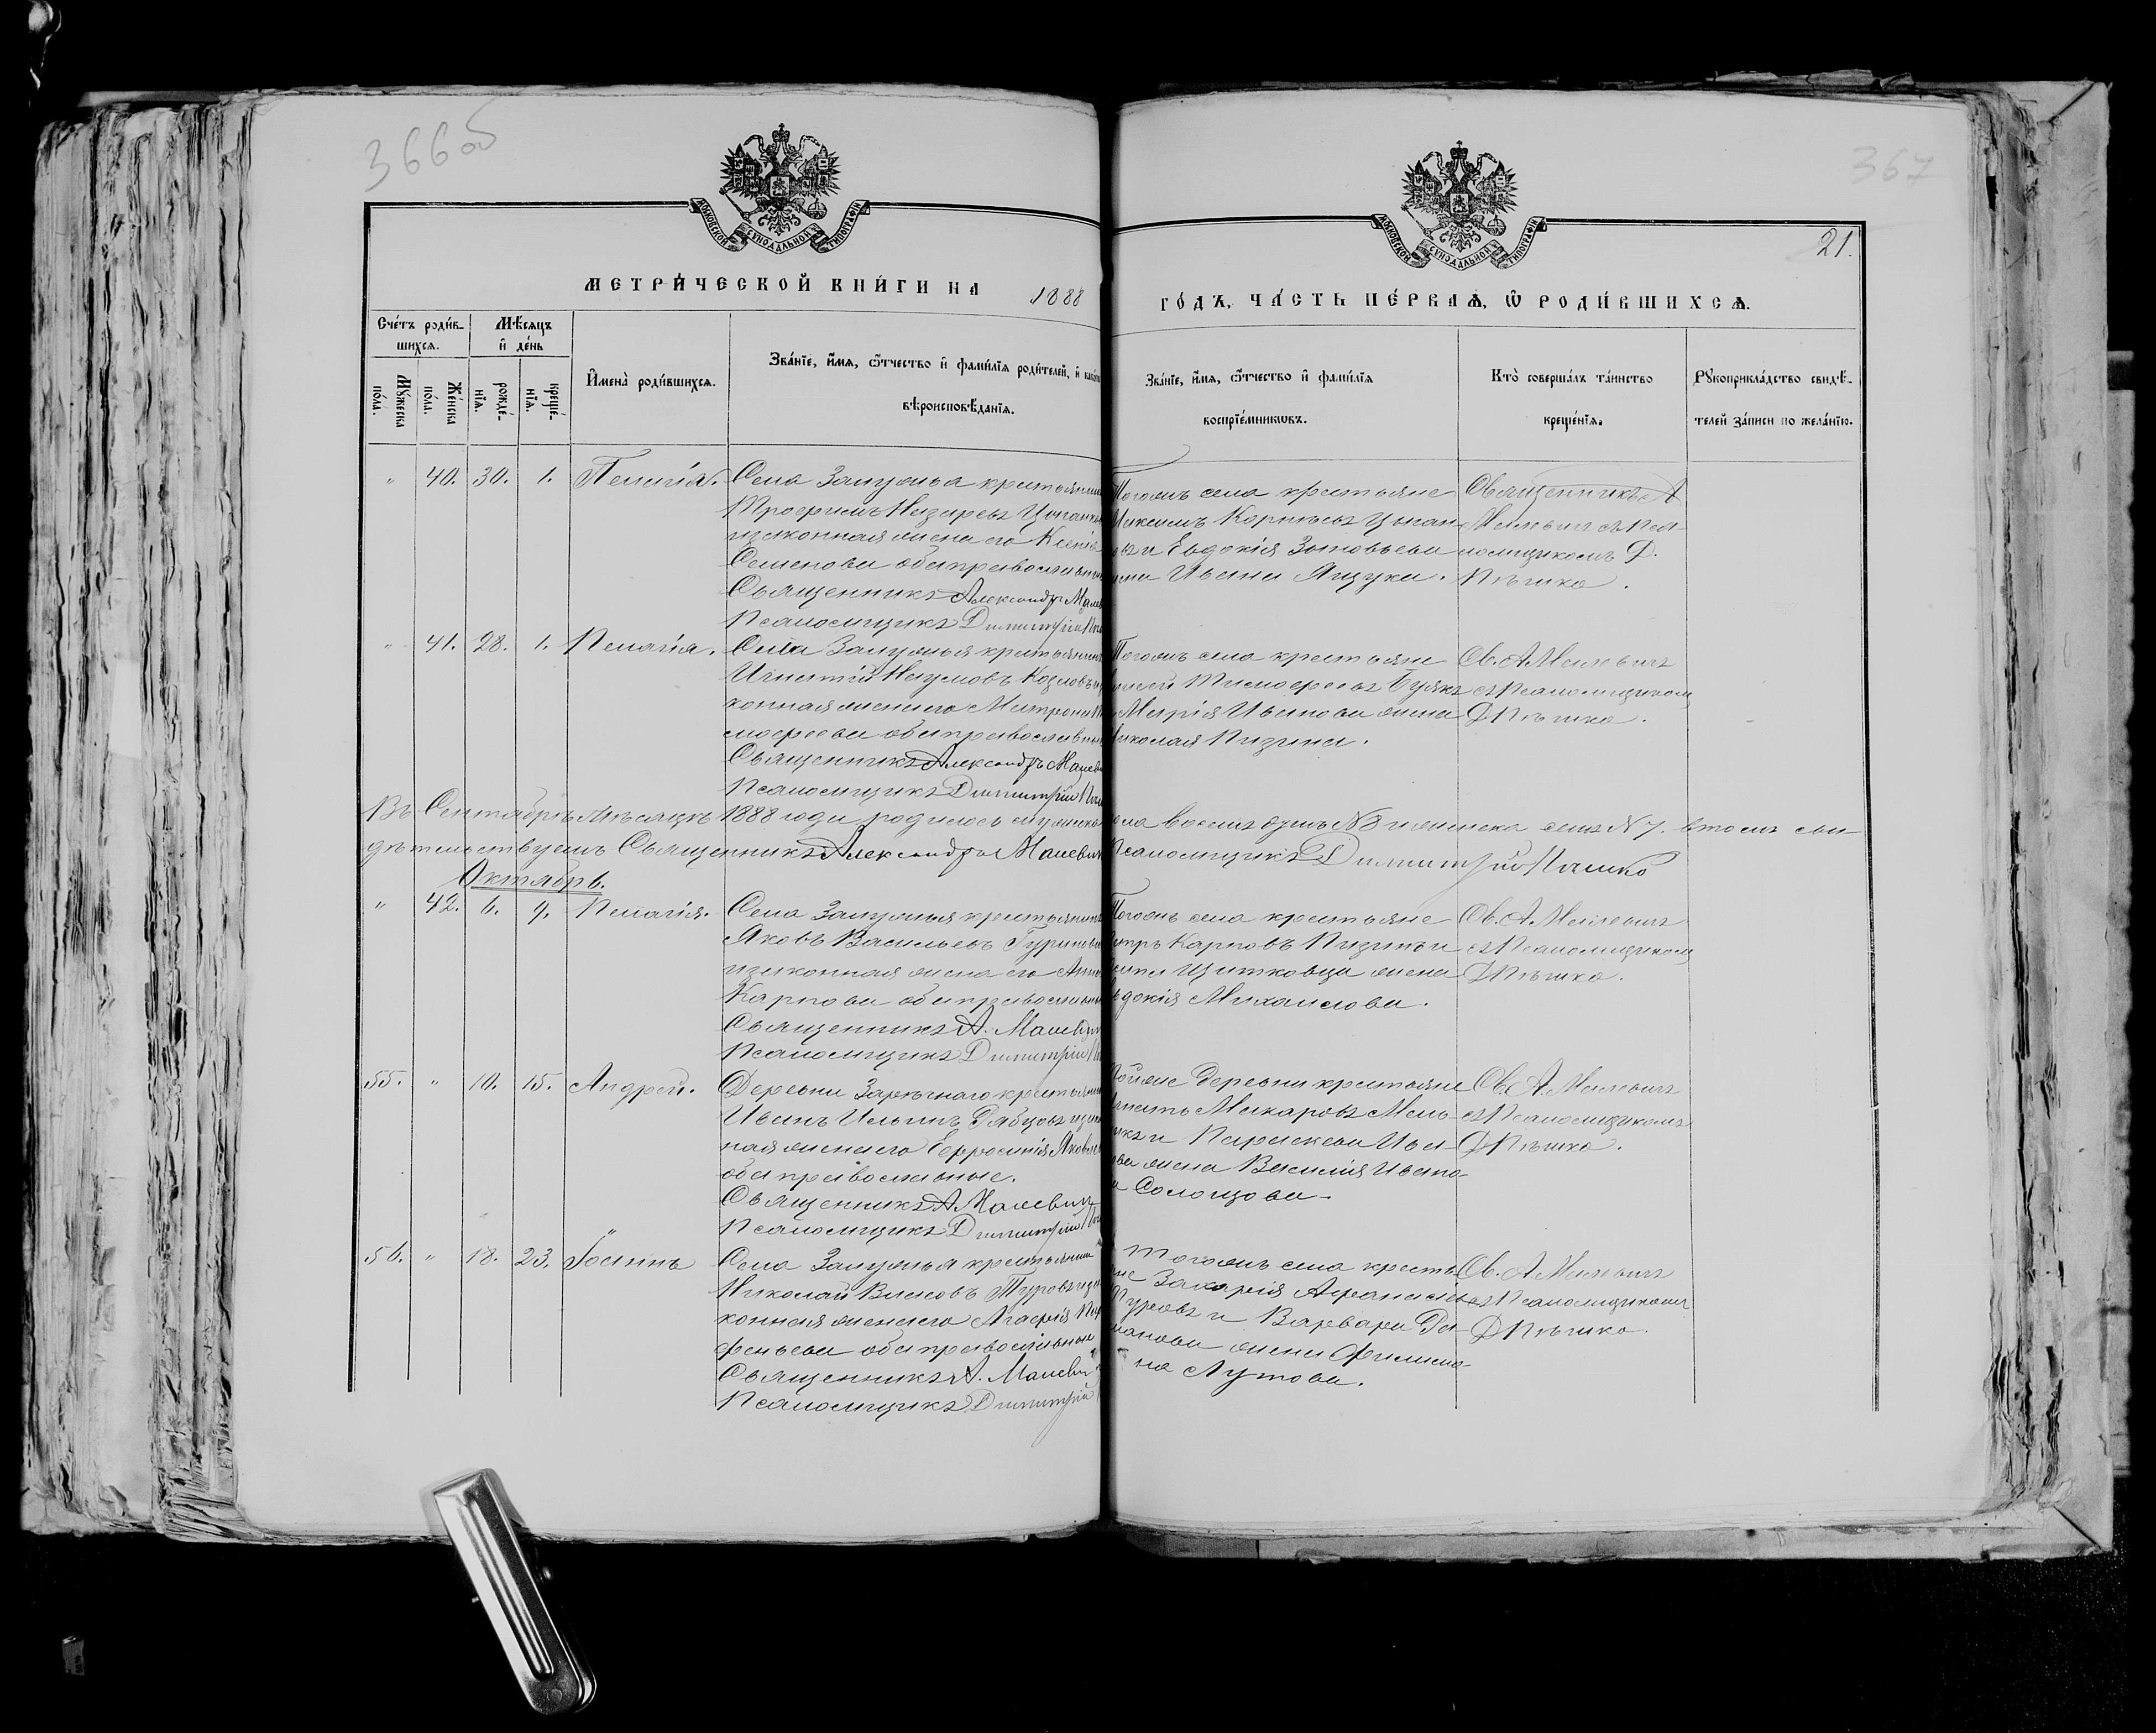 366об
367
МОСКОВСКОЙ СУНОДАЛЬНОЙ ТИПОГРАФІИ
МОСКОВСКОЙ СУНОДАЛЬНОЙ ТИПОГРАФІИ
21.
МЕТРИ́ЧЕСКОЙ КНИ́ГИ НА 1888
ГО́ДЪ, ЧА́СТЬ ПЕ́РВАѦ, Ѡ҆ РОДИ́ВШИХСѦ.
Сче́тъ роди́в-
шихсѧ.
Мꙋ́жеска
по́ла.
Же́нска
по́ла.
Мѣ́сѧцъ
и҆ де́нь
рожде́-
нїѧ.
креще́-
нїѧ.
И҆мена̀ роди́вшихсѧ.
Зва́нїе, и҆́мѧ, ѻ҆́тчество и҆ фами́лїѧ роди́телей, и҆
вѣроисповѣ́данїѧ.
Зва́нїе, и҆́мѧ, ѻ҆́тчество и҆ фами́лїѧ
воспрїе́мникѡвъ.
Кто̀ соверша́лъ та́инство
креще́нїѧ.
Рꙋкоприкла́дство свидѣ́-
телей за́писи по жела́нїю.
" 40. 30. 1. Пелагія. Села Залужья крестьянин
Трофимъ Назаровъ
и законная жена его Ксенія
Семенова оба православн
Священникъ Александръ Малев
Псаломщикъ Димитрій
Тогожъ села крестьяне
Максимъ Корнѣевъ Цыган-
Евдокія Зиновьева
жена Ивана Ящука.
Священникъ А
Малевичъ съ Пса-
ломщикомъ Д.
Пѣшко.
" 41. 28. 1. Пелагія. Села Залужья крестьянин
Игнатій Наумовъ Козловъ и
конная жена его Матрона
мофеева оба православн
Священникъ Александръ Малеви
Псаломщикъ Димитрій
Тогожъ села крестьяне
Тимофеевъ Буякъ
Марія Иванова жена
Николая Пизина.
Св. А Малевичъ
съ Псаломщиком
Д Пѣшко.
Въ Сентябрѣ мѣсяцѣ 1888 года родилось мужеска пола восемь душъ № 8 и женска семь № 7. въ томъ сви-
дѣтельствуемъ Священникъ Александръ Малевич Псаломщикъ Димитрій Пѣшко
Октябрь.
" 42. 6. 9. Пелагія. Села Залужья крестьянинъ
Яковъ Васильевъ
и законная жена его Анна
Карпова оба православн
Священникъ А. Малевич
Псаломщикъ Димитрій
Тогожъ села крестьяне
Петръ Карповъ Пизинъ и
Щитковца жена
Евдокія Михаилова.
Св. А. Малевичъ
съ Псаломщиком
Д Пѣшко.
55. " 10. 15. Андрей. Деревни Зарѣчнаго крестьянин
Иванъ Ильинъ Рябцовъ и зак
ная жена его Евфросинія Яковл
оба православные.
Священникъ А Малевичъ
Псаломщикъ Димитрій
Тойже деревни крестьяне
Игнатъ Макаровъ Мель-
никъ и Параскева Ива-
нова жена Василія Ивано-
ва Солонцова.
Св. А. Малевичъ
съ Псаломщикомъ
Д Пѣшко.
56. " 18. 23. Іосифъ Села Залужья крестьянин
Николай Власовъ Туровъ и за
конная жена его Агафія Пар
феньева оба православные
Священникъ А. Малевич
Псаломщикъ Димитрій
Тогожъ села кресть
яне Захарія Афанасіе
Туровъ и Варвара Ро-
манова жена Филимо-
на Лутова.
Св. А Малевичъ
съ Псаломщикомъ
Д Пѣшко.